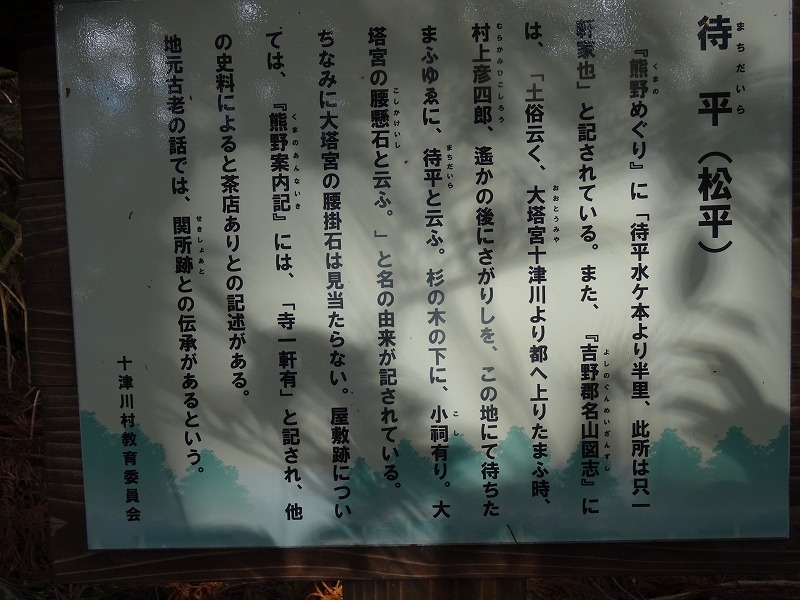 待平（松平）
『熊野めぐり』に「待平水ケ本より半里、此所は只一
軒家也」と記されている。また、『吉野郡名山図志』に
は、「土俗云く、大塔宮十津川より都へ上りたまふ時、
村上彦四郎、遙かの後にさがりしを、この地にて待ちた
まふゆゑに、待平と云ふ。杉の木の下に、小祠有り。大
塔宮の腰懸石と云ふ。」と名の由来が記されている。
ちなみに大塔宮の腰掛石は見当たらない。屋敷跡につい
ては、『熊野案内記』には、「寺一軒有」と記され、他
の史料によると茶店ありとの記述がある。
地元古老の話では、関所跡との伝承があるという。
十津川村教育委員会